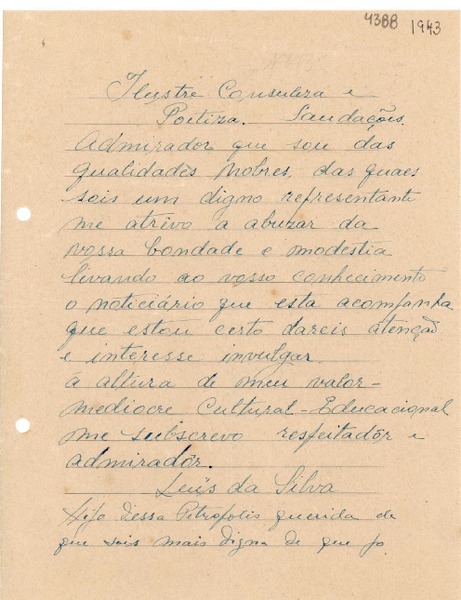 4388 1943
Ilustre Consuleza e
Poetiza. Saudações.
Admirador que sou das
qualidades nobres, das quaes
sois um digno representante
me atrivo a abuzar da
vossa bondade e modestia
levando ao vosso conhecimento
o noticiário que esta acompanha
que estou certo dareis atenção
e interesse invulgar.
á altura de meu valor-
mediocre Cultural-Educacional
me subscrevo respeitadôr e
admiradôr.
Luís da Silva
dessa Petropolis querida de
que sois mais digna de que